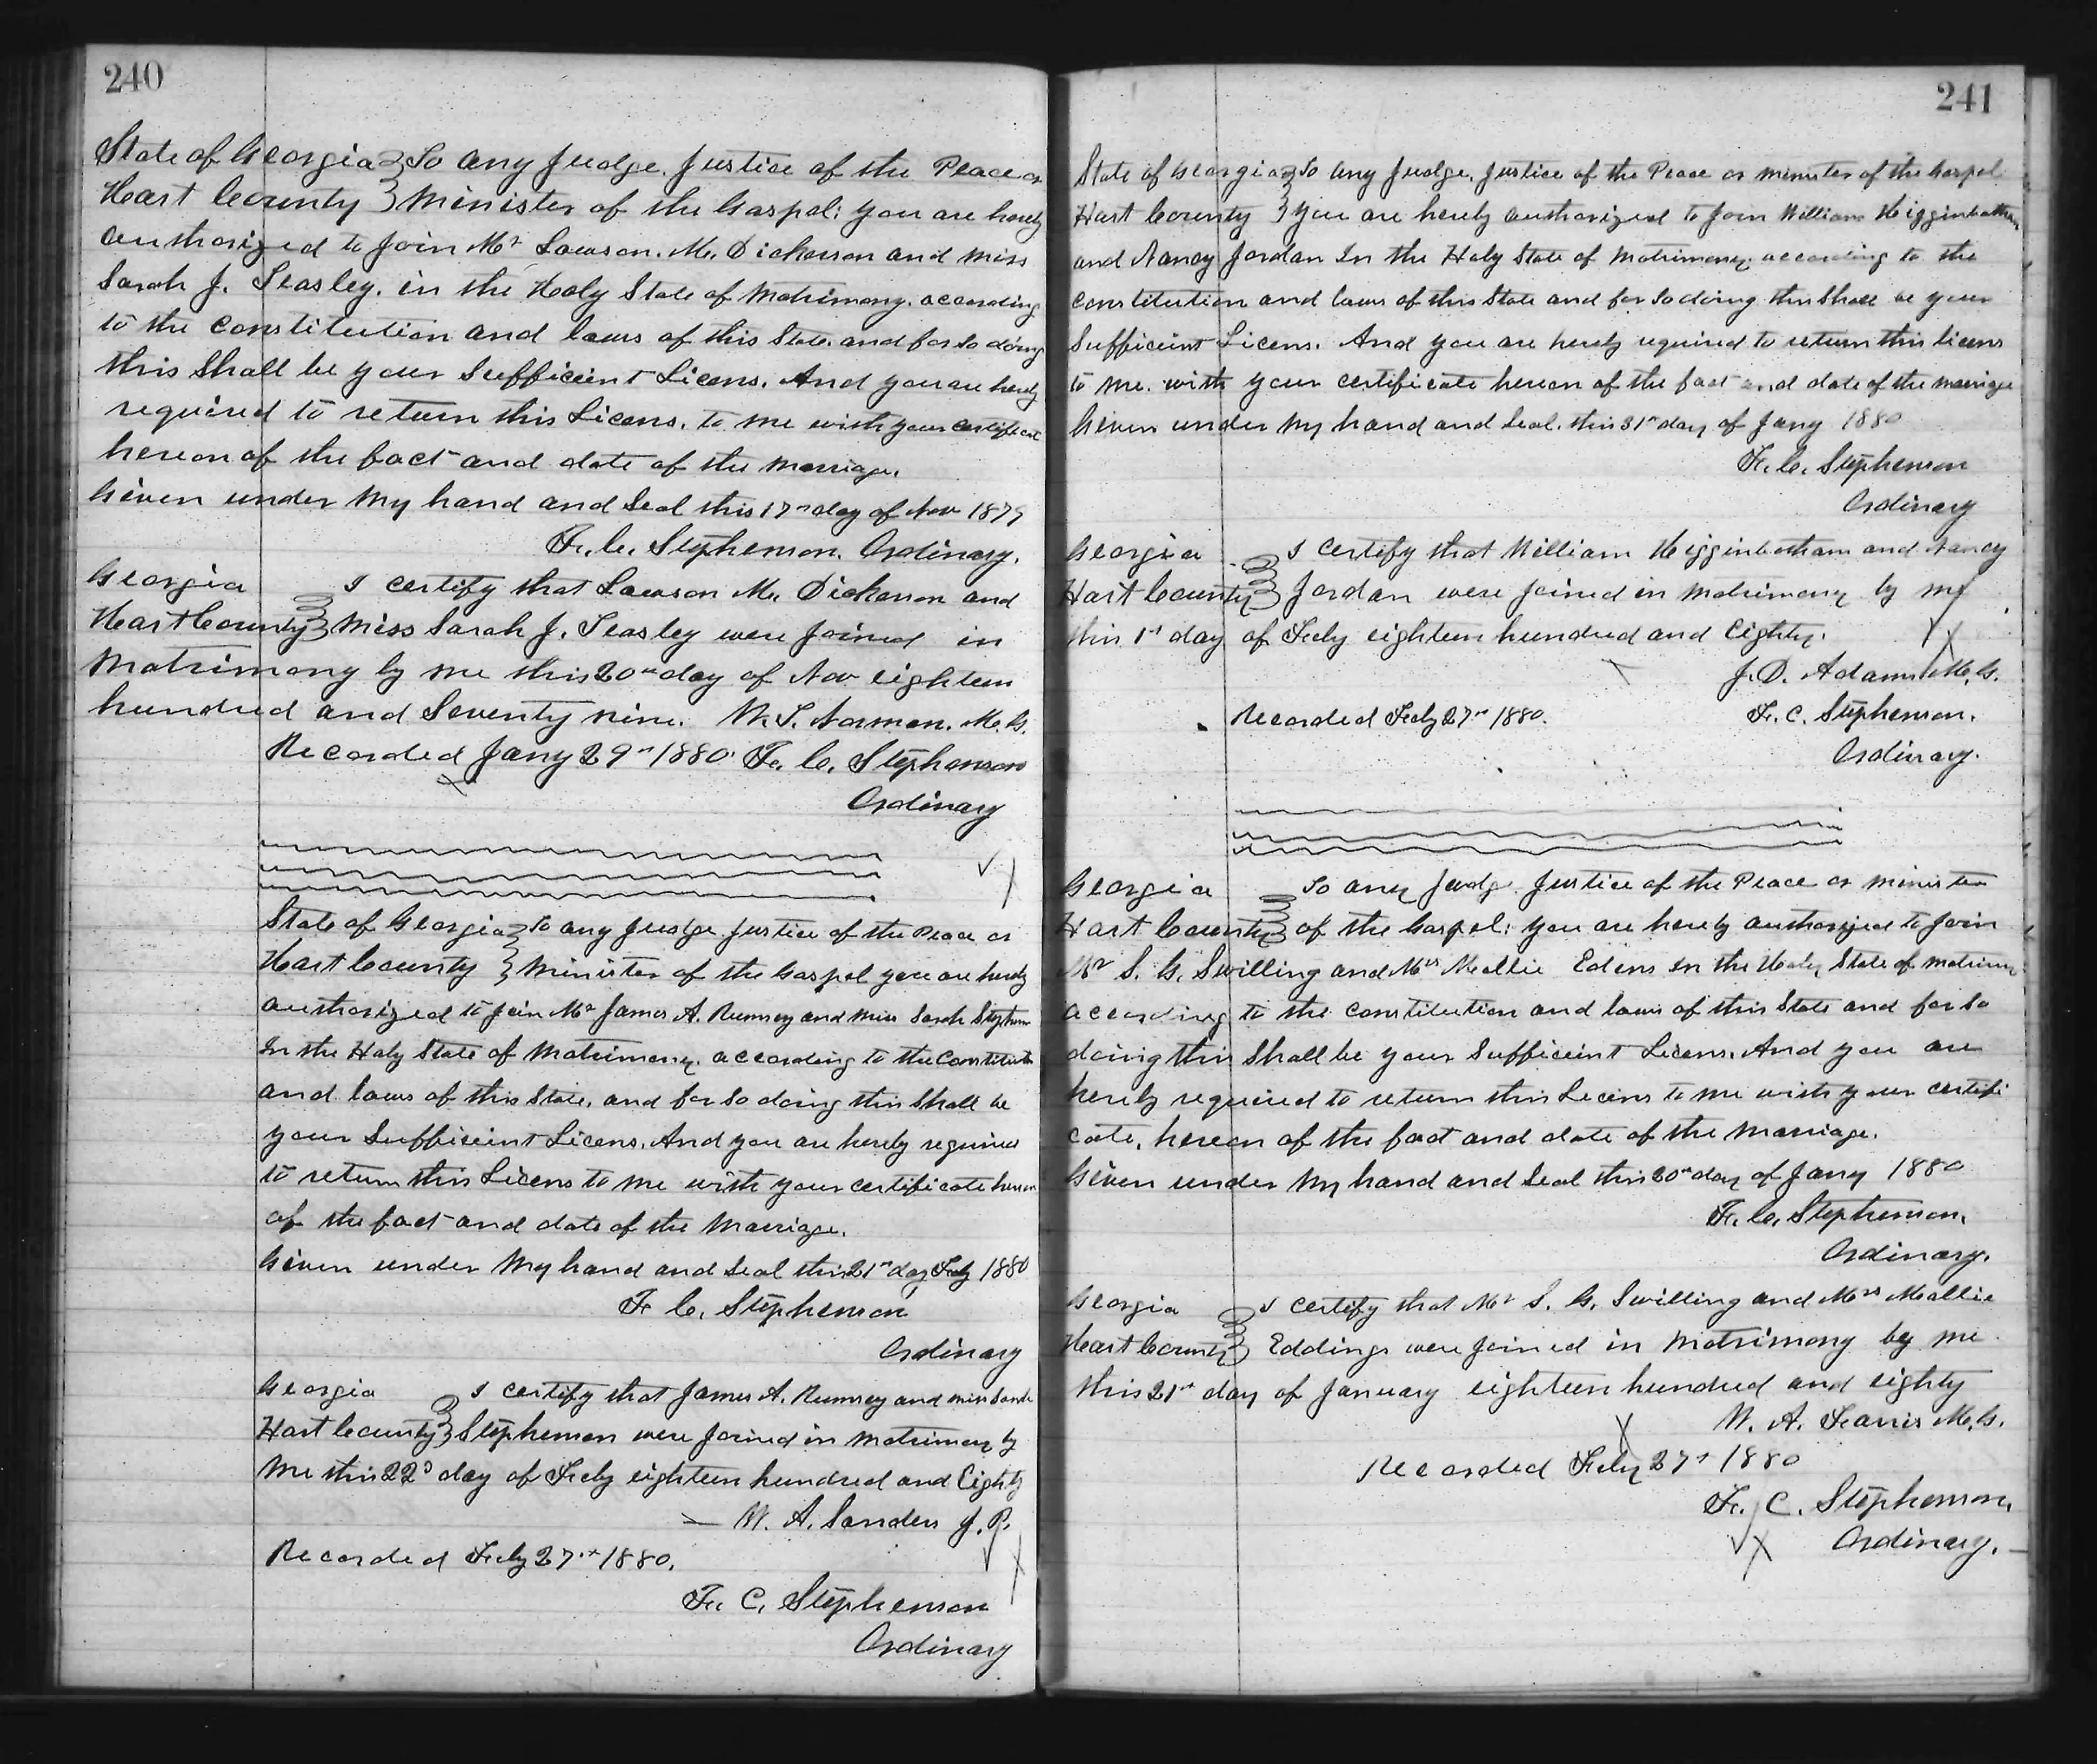 240
State of Georgia } To any Judge, Justice of the Peace or
Hart County } Minister of the Gospel: you are hereby
authorized to join Mr Lawson. M. Dickerson and miss
Sarah J. Teasley. in the Holy State of Matrimony. according
to the constitution and laws of this State. and for so doing
this shall be your sufficient Licens. And you are hereby
required to return this Licens. to me with your certificate
hereon of the fact and date of the marriage.
Given under my hand and Seal this 17th day of Nov 1879
F. C. Stephenson. Ordinary.
Georgia } I certify that Lawson M. Dickerson and
Hart County } Miss Sarah J. Teasley were joined in
Matrimony by me this 20th day of Nov eighteen
hundred and Seventy nine. W. T. Norman. M. G.
Recorded Jany 29th 1880. F. C. Stephenson
Ordinary
State of Georgia } To any Judge Justice of the Peace or
Hart County } Minister of the Gospel you are hereby
authorized to join Mr James A. Rumsey and miss Sarah Stephenson
In the Holy State of Matrimony. according to the Constitution
and laws of this State. and for so doing this shall be
your Sufficient Licens. And you are hereby required
to return this Licens to me with your certificate hereon
of the fact and date of the Marriage.
Given under my hand and Seal this 21st day Feby 1880
F. C. Stephenson
Ordinary
Georgia } I certify that James A. Rumsey and miss Sarah
Hart County } Stephenson were joined in matrimony by
me this 22d day of Feby eighteen hundred and Eighty
W. A. Sanders J. P.
Recorded Feby 27th 1880.
F. C. Stephenson
Ordinary
241
State of Georgia } To any Judge, Justice of the Peace or minister of the Gospel
Hart County } you are hereby authorized to join William Higginbotham
and Nancy Jordan In the Holy State of Matrimony. according to the
constitution and laws of this State and for so doing this shall be your
Sufficient Licens. And you are hereby required to return this licens
to me. with your certificate hereon of the fact and date of the marriage
Given under my hand and Seal. this 31st day of Jany 1880
F. C. Stephenson
Ordinary
Georgia } I certify that William Higginbotham and Nancy
Hart County } Jordan were joined in matrimony by me
this 1st day of Feby eighteen hundred and Eighty.
J. D. Adams M. G.
Recorded Feby 27th 1880. F. C. Stephenson.
Ordinary.
Georgia } To any Judge Justice of the Peace or minister
Hart County } of the Gospel: you are hereby authorized to join
Mr S. G. Swilling and Mrs Mollie Edens In the Holy State of matrimony
according to the constitution and laws of this State and for so
doing this shall be your Sufficient Licens. And you are
hereby required to return this Licens to me with your certifi
cate. hereon of the fact and date of the marriage.
Given under my hand and Seal this 20th day of Jany 1880
F. C. Stephenson.
Ordinary.
Georgia } I certify that Mr S. G. Swilling and Mrs Mollie
Hart County } Eddings were joined in Matrimony by me
this 21st day of January eighteen hundred and eighty
W. A. Fearis M. G.
Recorded Feby 27th 1880
F. C. Stephenson.
Ordinary.